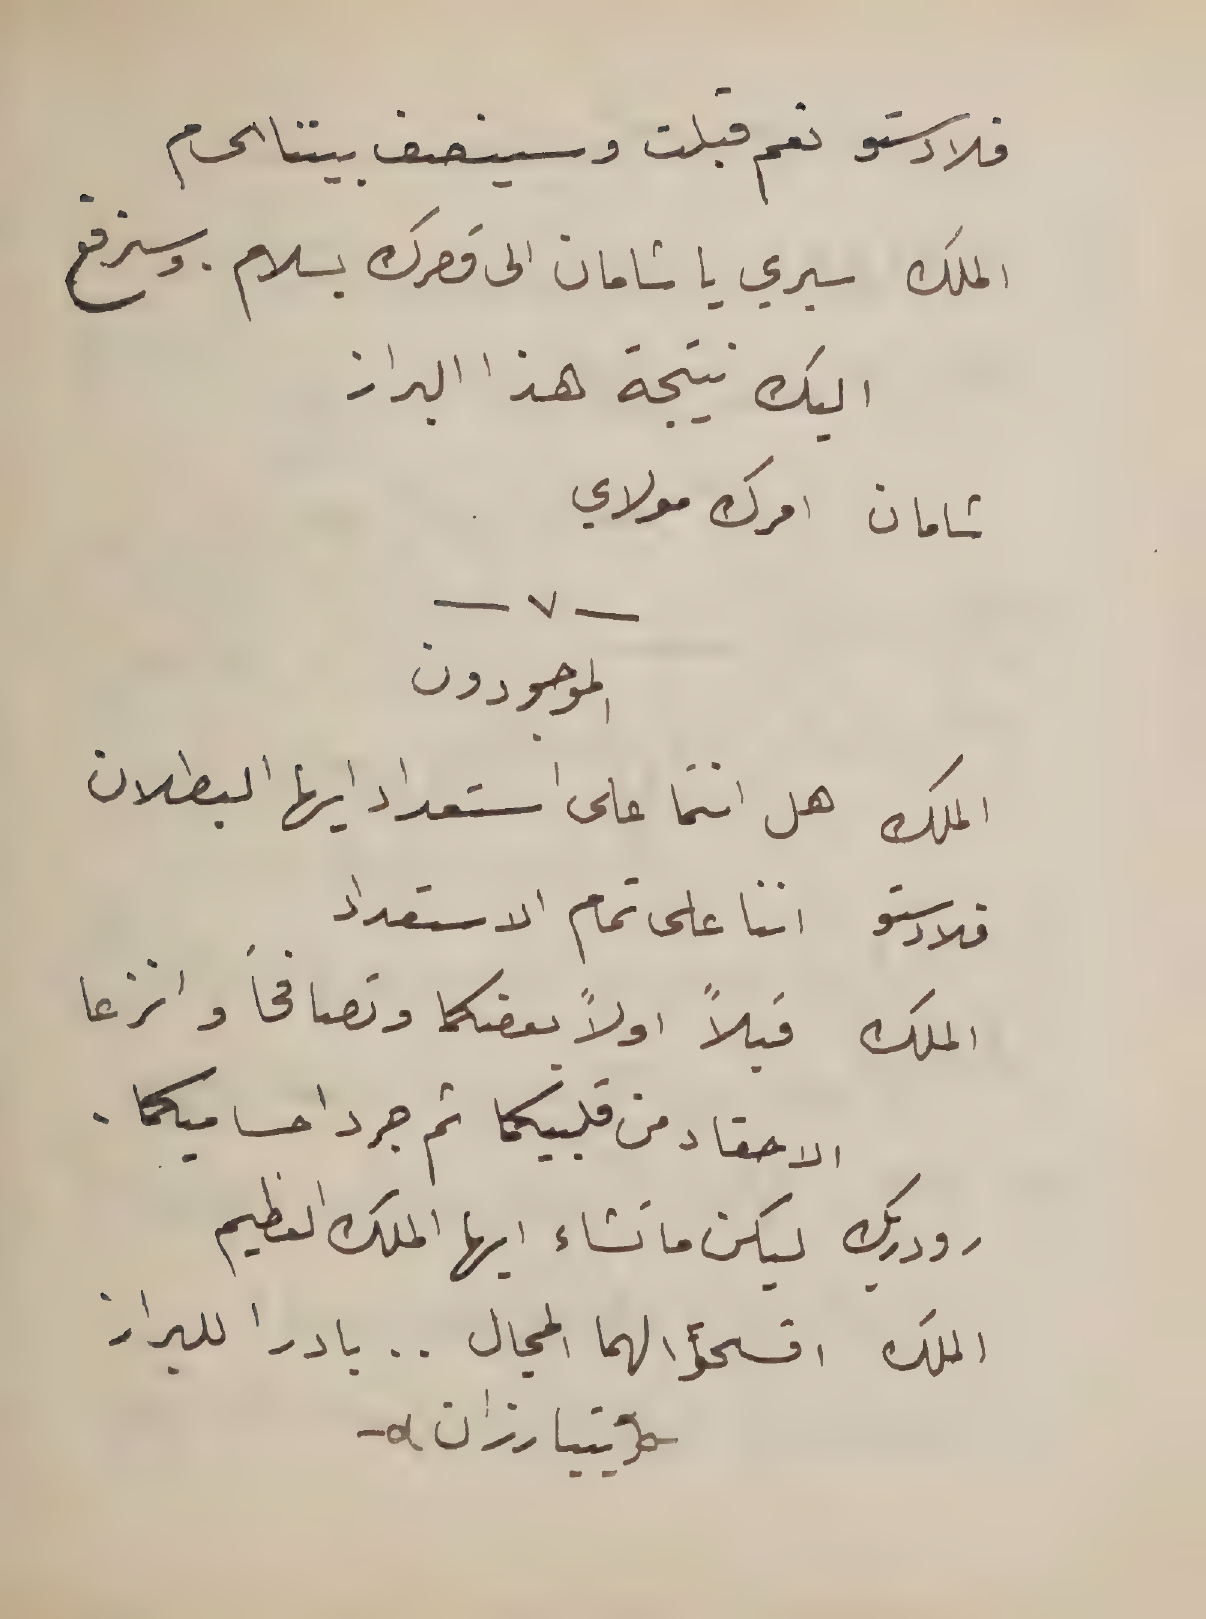 فلادستو نعم قبلت وسينصف بيننا الحسام
الملك سيري يا شامان الى قصرك بسلام . وسنرفع
اليك نتيجة هذا البراز
شامان امرك مولاي
— ٧ —
الموجودون
الملك هل انتما على استعداد ايها البطلان
فلادستو اننا على تمام الاستعداد
الملك قبلاً اولاً بعضكما وتصافحاً وانزعا
الاحقاد من قلبيكما ثم جردا حساميكما .
رودريك ليكن ما تشاء ايها الملك العظيم
الملك افسحوا لهما المجال .. بادرا للبراز
يتبارزان